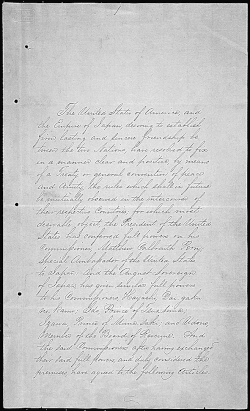 The United States of America, and
the Empire of Japan, desiring to establish
firm, lasting and sincere friendship be
tween the two Nations, have resolved to fix
in a manner clear and positive by means
of a Treaty or general convention of peace
and Amity, the rules which shall in future
be mutually observed in the intercourse of
their respective Countries; for which most
desirable object, the President of the United
States has conferred full powers on his
Commissioner, Matthew Calbraith Perry,
Special Ambassador of the United States
to Japan And the August Sovereign
of Japan, has given similar full powers
to his Commissioners, Hayashi, Dai-gaku
no-kami, Ido, Prince of Tsus-Sima,
Izawa, Prince of Mima-saki and Udono,
Member of the Board of Revenue. And
the said Commissioners, after having exchanged
their said full powers, and duly considered the
premises, have agreed to the following Articles